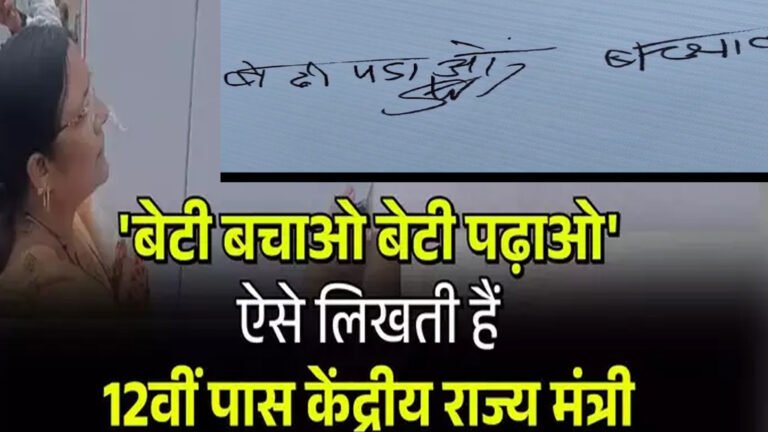 बेढी पडाओ
बच्चाव
'बेटी बचाओ बेटी पढ़ाओ'
ऐसे लिखती हैं
12वीं पास केंद्रीय राज्य मंत्री